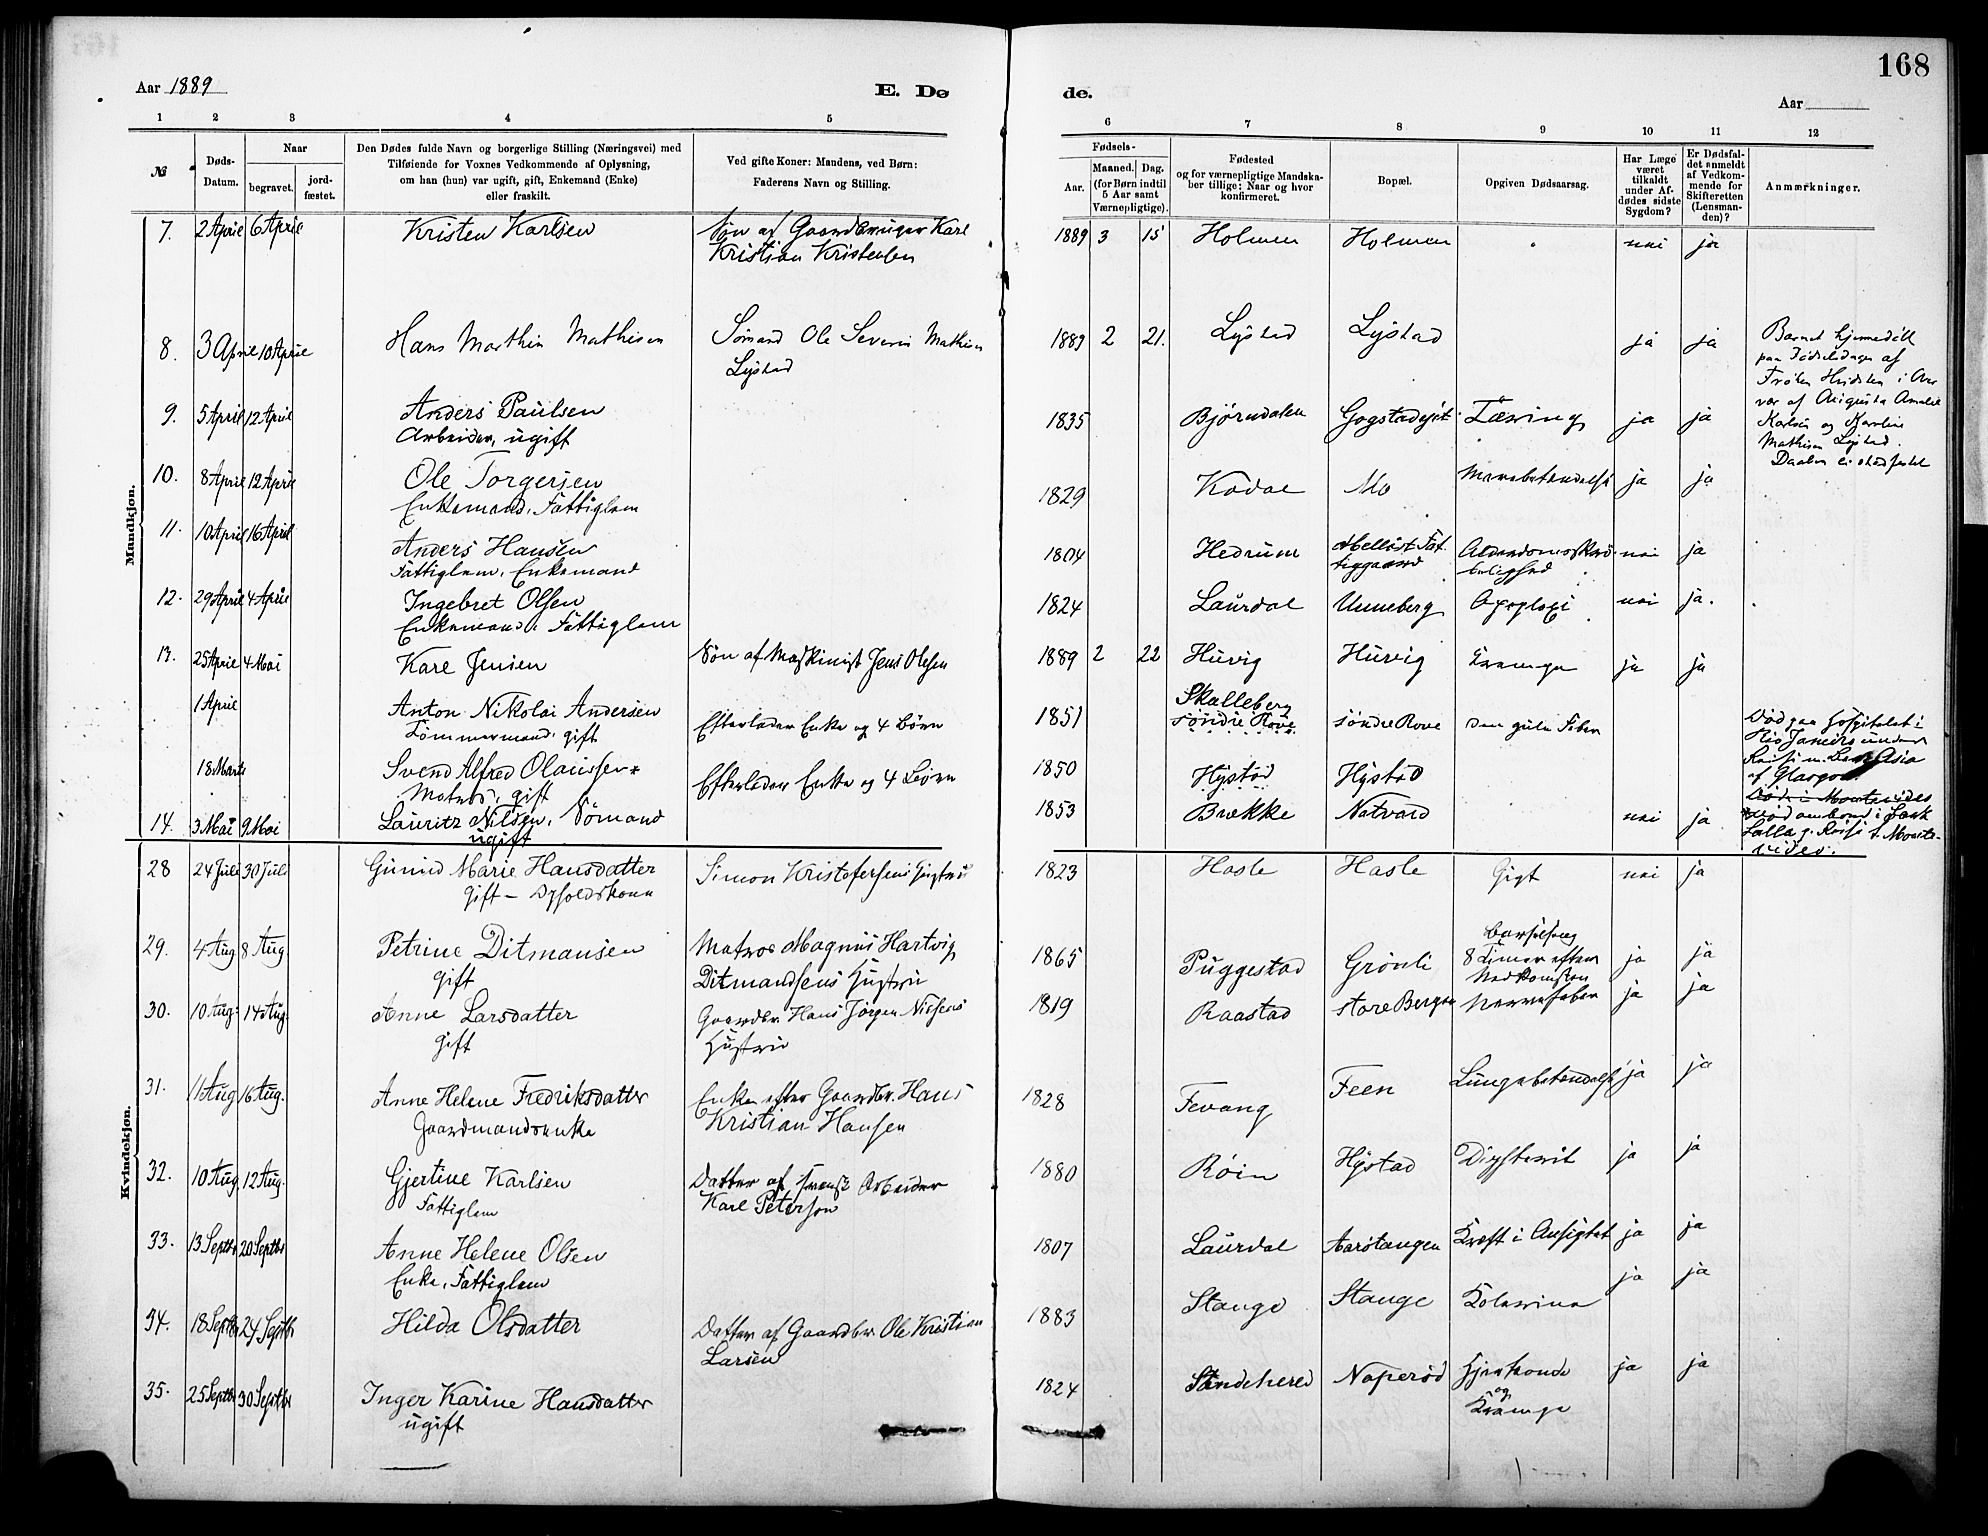 168
Aar 1889
E. Dø
de.
Aar
1 2 3 4 5 6 7 8 9 10 11 12
№
Døds-
Datum.
Naar
begravet.
jord-
fæstet.
Den Dødes fulde Navn og borgerlige Stilling (Næringsvei) med
Tilføiende for Voxnes Vedkommende af Oplysning,
om han (hun) var ugift, gift, Enkemand (Enke)
eller fraskilt.
Ved gifte Koner: Mandens, ved Børn:
Faderens Navn og Stilling.
Fødsels-
Aar.
Maaned. Dag.
(for Børn indtil
5 Aar samt
Værnepligtige).
Fødested
og for værnepligtige Mandska-
ber tillige: Naar og hvor
konfirmeret.
Bopæl.
Opgiven Dødsaarsag.
Har Læge
været
tilkaldt
under Af-
dødes sidste
Sygdom?
Er Dødsfal-
det anmeldt
af Vedkom-
mende for
Skifteretten
(Lensman-
den)?
Anmærkninger.
Mandkjøn.
7. 2 April 6 April Kristen Karlsen Søn af Gaardbruger Karl 1889 3 15 Holmen Holmen nei ja
Kristian Kristensen
8. 3 April 10 April Hans Marthin Mathisen Sømand Ole Severin Mathisen 1889 2 21. Lystad Lystad ja ja Barnet hjemmedøbt
Lystad
paa Fødselsdagen af
Frøken Hvidsten i Over
vær af Augusta Amalie
Karlsen og Karoline
Mathisen Lystad.
Daaben er stadfæstet
9. 5 April 12 April Anders Paulsen 1835 Bjørndalen Gogstadejet Tæring ja ja
Arbeider, ugift
10. 8 April 12 April Ole Torgersen 1829 Kodal Mo Mavebetændelse ja ja
Enkemand, Fattiglem
11. 10 April 16 April Anders Hansen 1804 Hedrum Melløst Fat- Alderdomsskrø- nei ja
Fattiglem, Enkemand tiggaard belighed
12. 29 April 4 April Ingebret Olsen 1824 Laurdal Unneberg Apoplexi nei ja.
Enkemand, Fattiglem
13. 25 April 4 Mai Karl Jensen Søn af Maskinist Jens Olsen 1889 2 22 Huvig Huvig Krampe ja ja
1 April Anton Nikolai Andersen Efterlader Enke og 4 Børn 1851 Skalleberg
Tømmermand, gift søndre Rove søndre Rove Den gule Feber
Død paa Hospitalet i
Rio Janeiro under
Reise m. Bark Asia
af Glasgow
18 Marts Svend Alfred Olaussen Efterlader Enke og 4 Børn 1850 Hystad Hystad
Matros, gift
Død i Montevideo
Død ombord i Bark
Lalla p. Reise t. Monte-
video.
14. 3 Mai 9 Mai Lauritz Nilsen, Sømand 1853 Brække Natvald nei ja
ugift
Kvindekjøn.
28 24 Juli 30 Juli Gunild Marie Hansdatter Simon Kristofersens Hustru 1823 Hasle Hasle Gigt nei ja
Gift –
29. 4 Aug 8 Aug. Petrine Ditmansen Matros Magnus Hartvig 1865 Puggestad Grønli Barselseng ja ja
gift Ditmandsens Hustru 8 Timer efter
Nedkomsten
30. 10 Aug. 14 Aug. Anne Larsdatter Gaardbr. Hans Jørgen Nilsens 1819 Raastad store Bergan Nervefeber ja ja
gift Hustru
31. 11 Aug 16 Aug. Anne Helene Fredriksdatter Enke efter Gaardbr. Hans 1828 Fevang Feen Lungebetændelse ja ja
Gaardmandsenke Kristian Hansen
32. 10 Aug. 12 Aug. Gjertine Karlsen Datter af svensk Arbeider 1880 Røin Hystad Difterit ja ja
Fattiglem Karl Peterson
33. 13 Septbr 20 Septbr Anne Helene Olsen 1807 Laurdal Aarstangen Kræft i Ansigtet ja ja
Enke, Fattiglem
34. 18 Septbr 24 Septbr Hilda Olsdatter Datter af Gaardbr Ole Kristian 1883 Stange Stange Kolerina ja ja
Larsen
35. 25 Septbr 30 Septbr Inger Karine Hansdatter 1824 Sandeherred Naperød ja ja
ugift og
Krampe